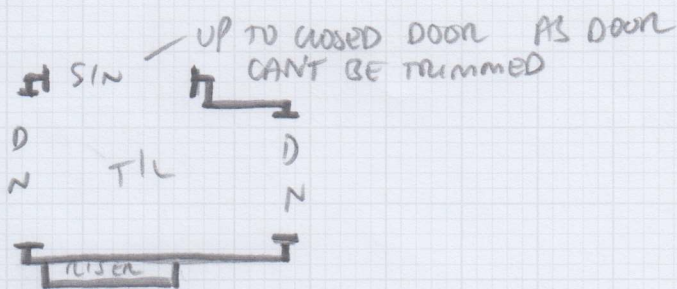 UP TO CLOSED DOOR AS DOOR
CAN'T BE TRIMMED
S/N
D
N
T/L
D
N
RISER